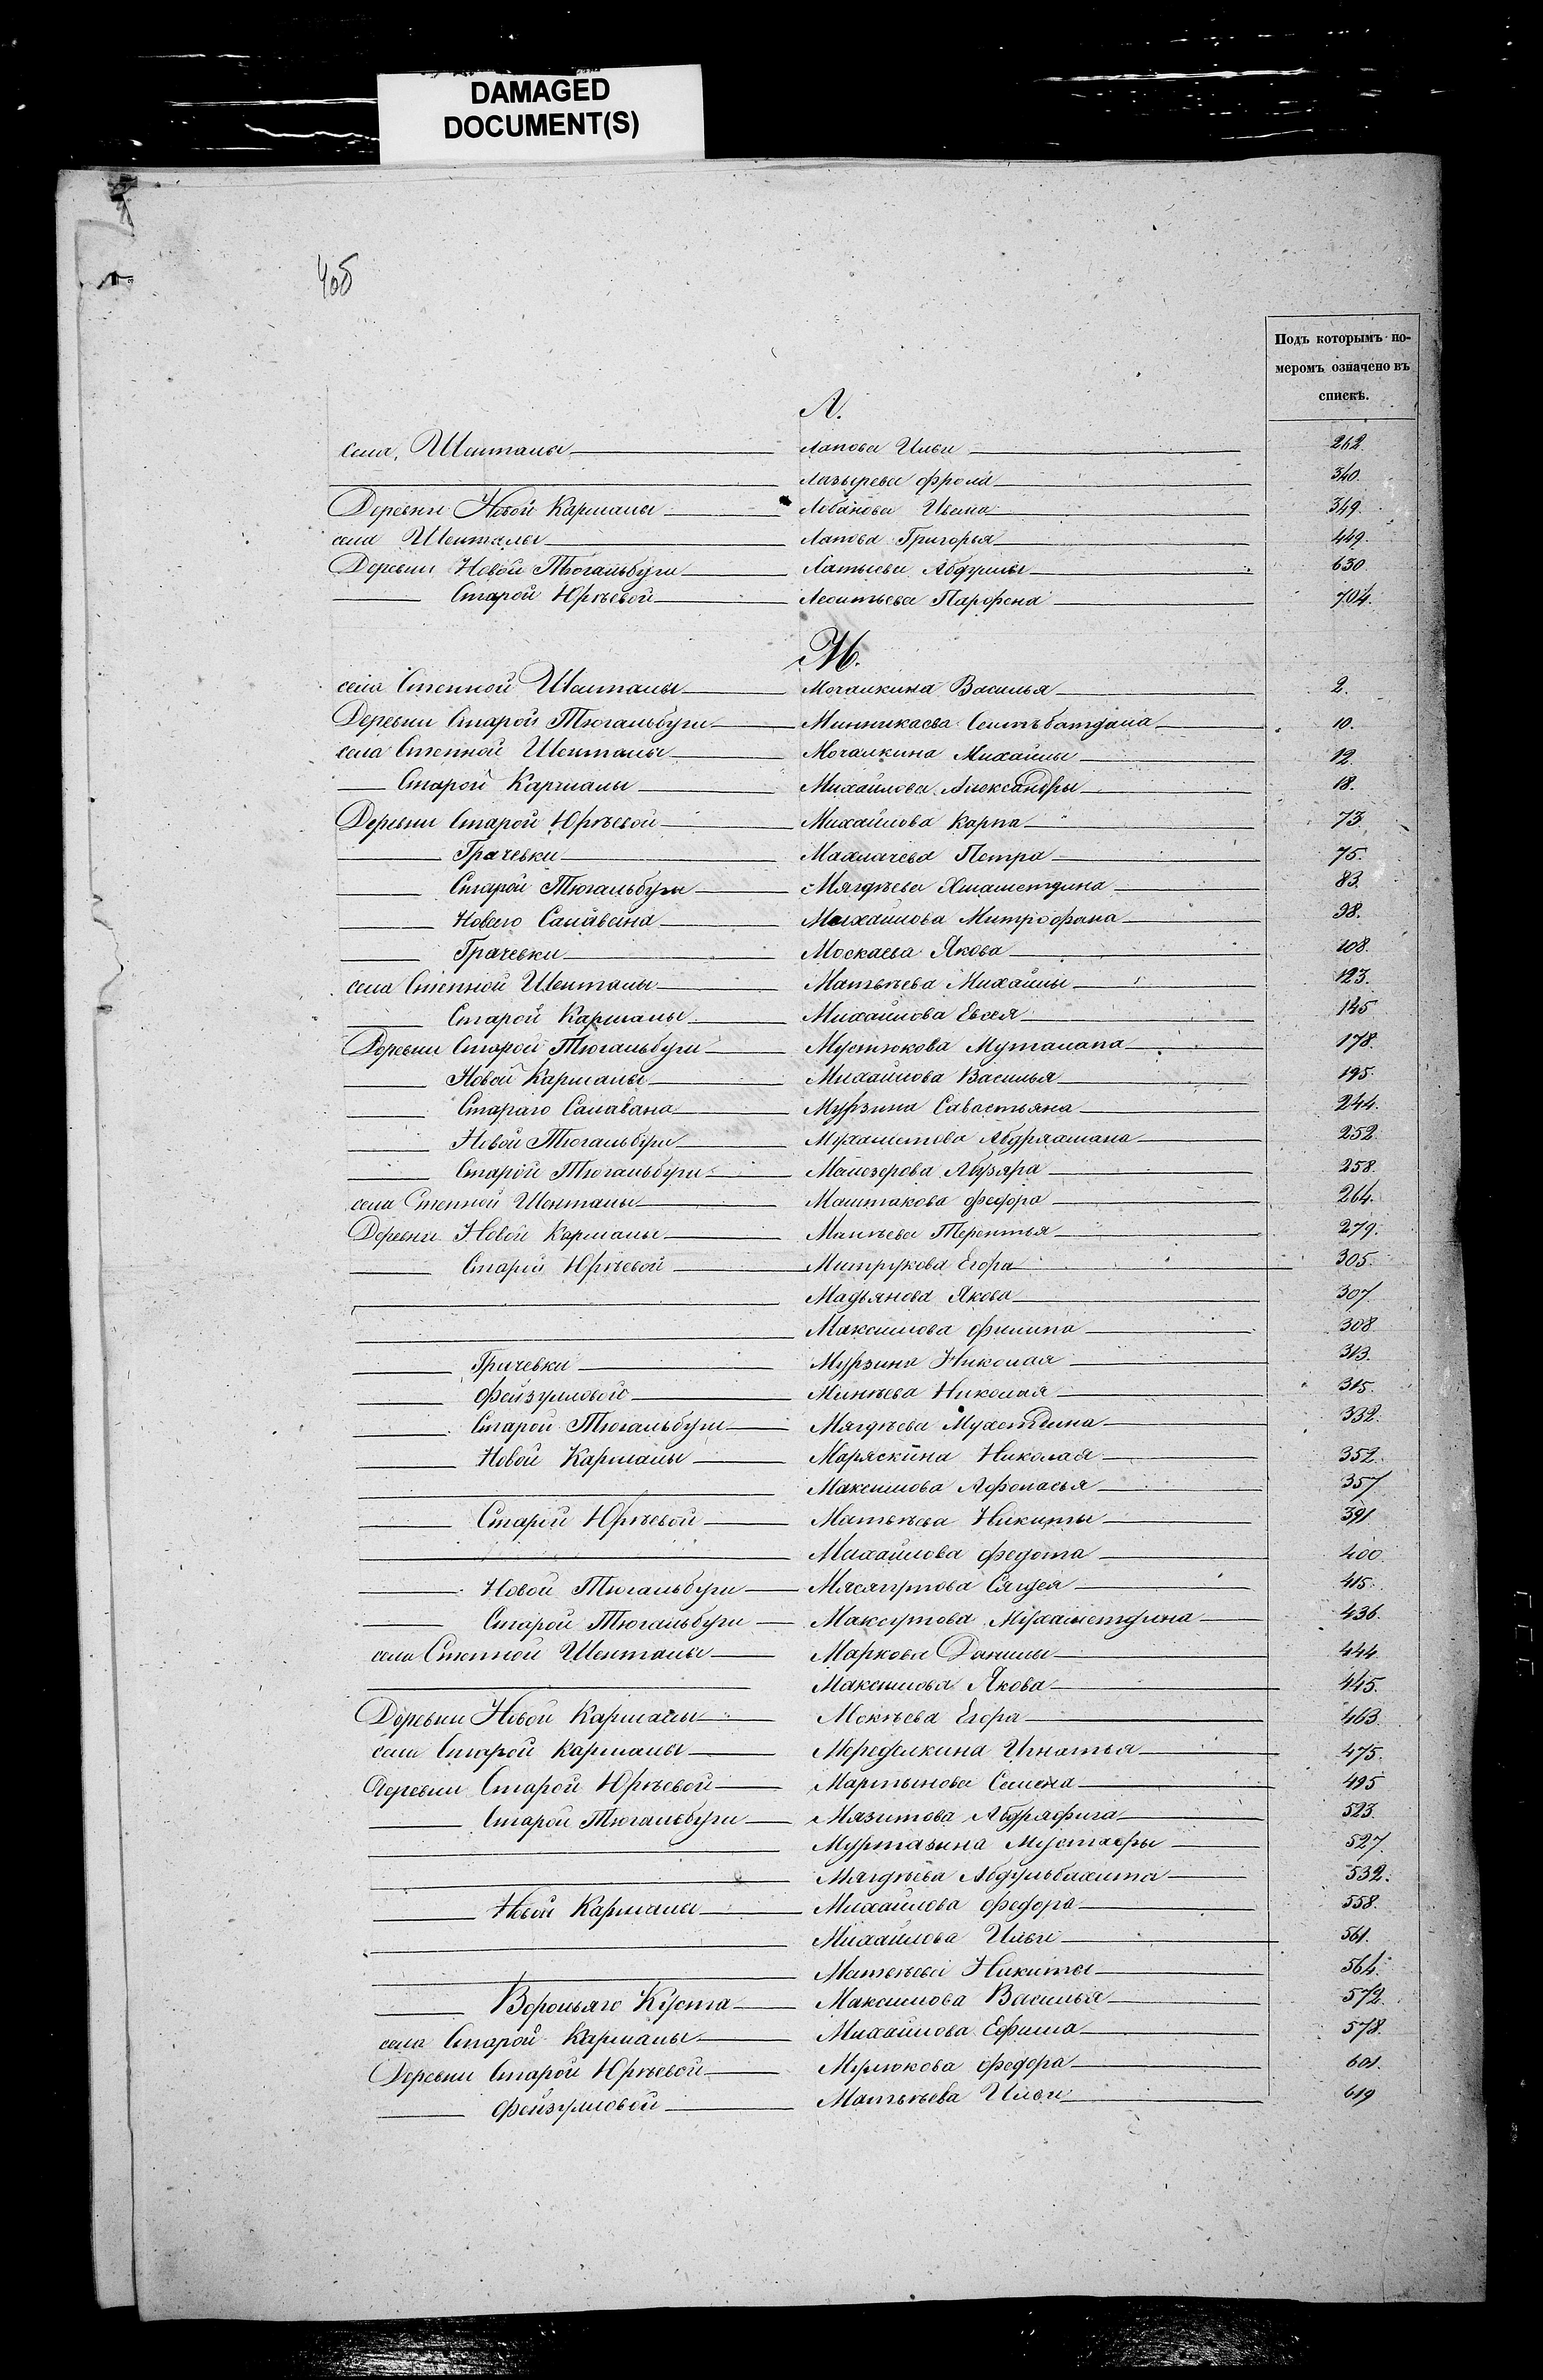 DAMAGED
DOCUMENT(S)
406
Подъ которымъ но-
меромъ означено въ
спискѣ.
Л.
села, Шенталы — Лапова Ильи — 262.
— Лазырева Фрола — 340.
Деревни Новой Кармалы — Лобанова Изома — 349.
села Шенталы — Лапова Григорья — 449.
Деревни Новой Тюгальбуги — Латыева — 630
— Старой Юрьевой — Леонтьева Парфена — 704.
М.
села Степной Шенталы — Мочалкина Василья — 2.
Деревни Старой Тюгальбуги — Минникаева — 10.
села Степной Шенталы — Мочалкина Михайлы — 12.
— Старой Кармалы — Михайлова Александры — 18.
Деревни Старой Юрьевой — Михайлова Карпа — 73.
— Грачевки — Махлачева Петра — 75.
— Старой Тюгальбуги — Мягдѣева — 83.
— Новаго Салавана — Михайлова Митрофана — 98.
— Грачевки — Москаева Якова — 108.
села Степной Шенталы — Матвѣева Михайлы — 123.
— Старой Кармалы — Михайлова Евсея — 145
Деревни Старой Тюгальбуги — Мустюкова Муталапа — 178.
— Новой Кармалы — Михайлова Василья — 195.
— Стараго Салавана — Мурзина Савастьяна — 244.
— Новой Тюгальбуги — Мухаметова Абдрахмана — 252.
— Старой Тюгальбуги — Майозерова Абузяра — 258.
села Степной Шенталы — Маштакова Федора — 264.
Деревни Новой Кармалы — Манѣева Терентья — 279.
— Старой Юрьевой — Митрукова Егора — 305.
— Мадьянова Якова — 307
— Максимова Филипа — 308.
— Грачевки — Мурзина Николая — 313.
— Фейзулловой — Минѣева Николая — 315.
— Старой Тюгальбуги — Мягдѣева Мухетдина — 332.
— Новой Кармалы — Маряскина Николая — 352.
— Максимова Афонасья — 357
— Старой Юрьевой — Матвѣева Никиты — 391
— Михайлова Федота — 400.
— Новой Тюгальбуги — Мясягутова — 415.
— Старой Тюгальбуги — Максутова Мухаметдина — 436.
села Степной Шенталы — Маркова Данилы — 444
— Максимова Якова — 445.
Деревни Новой Кармалы — Мокѣева Егора — 463.
села Старой Кармалы — Меределкина Игнатья — 475.
Деревни Старой Юрьевой — Мартынова Семена — 495
— Старой Тюгальбуги — Мязитова Абдряфига — 523.
— Муртазина Мустафы — 527.
— Мягдѣева Абдульбахита — 532.
— Новой Кармалы — Михайлова Федора — 558.
— Михайлова Ильи — 561.
— Матвѣева Никиты — 564.
— Вороньяго Куста — Максимова Василья — 572.
села Старой Кармалы — Михайлова Ефима — 578.
Деревни Старой Юрьевой — Мулюкова Федора — 601.
— Фейзулловой — Матвѣева Ильи — 619